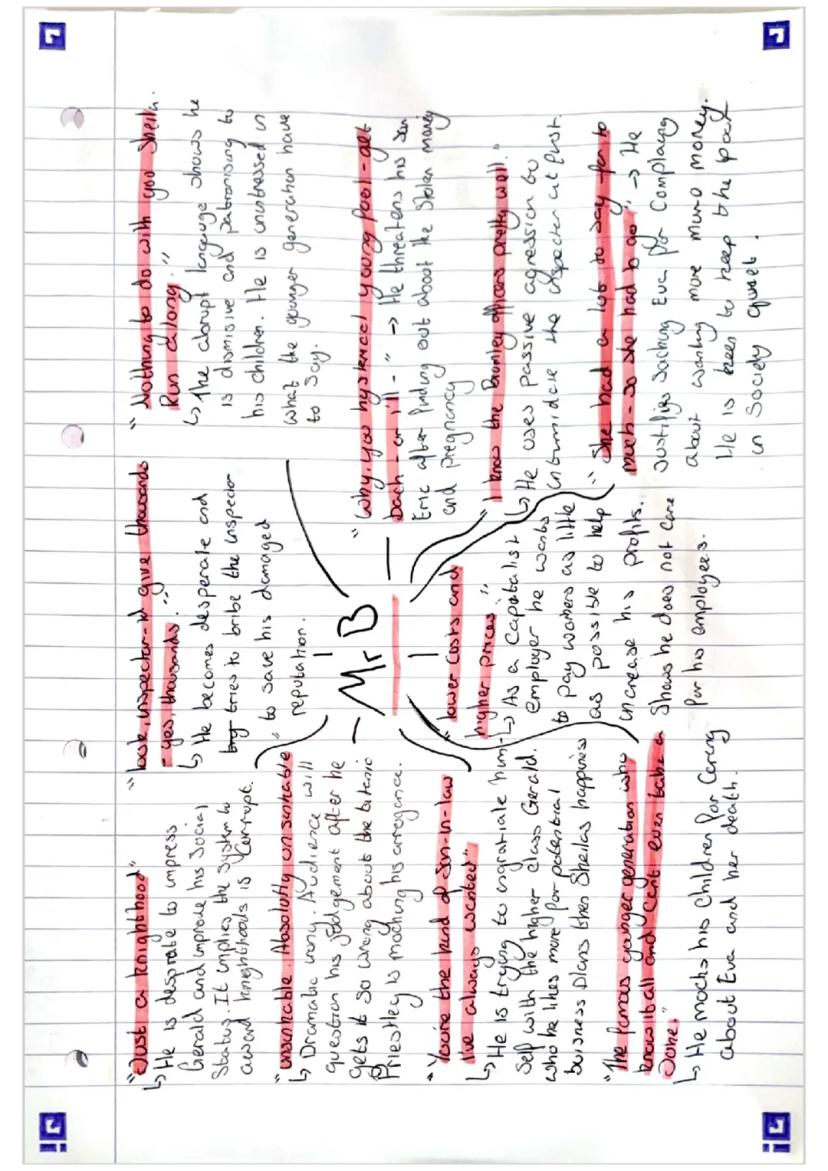 "Just a knighthood"
↳ He is desprate to impress
Gerald and improve his Social
Status. It implies the system to
award knighthoods is Corrupt.
"unsinkable. Absolutely unsinkable
↳ Dramatic irony. Audience will
question his judgement after he
gets it so wrong about the titanic
Priestley is mocking his arrogance.
"You're the kind of Son-in-law
I've always wanted"
↳ He is trying to ingratiate him-
self with the higher class Gerald.
who he likes more for potential
buisness plans then Sheilas happiness
"The famous younger generation who
know it all and Cant even take a
Joke."
↳ He mocks his Children for Caring
about Eva and her death.
"look, inspector-i'd give thousands
- yes, thousands."
↳ He becomes desperate and
tries to bribe the inspector
to save his damaged
reputation.
Mr B
"lower Costs and
higher prices"
↳ As a Capitalist
employer he wants
to pay workers as little
as possible to help
increase his profits.
Shows he does not Care
for his employees.
"Nothing to do with you Sheila.
Run along."
↳ The abrupt language shows he
is dismisive and patronising to
his children. He is unintressed in
what the younger generation have
to say.
"Why, you hysterical young fool - get
back - or i'll - " → He threatens his son
Eric after finding out about the Stolen money
and pregnancy
"I know the Brumley officers pretty well."
↳ He uses passive agression to
intimidate the inspector at first.
"She had a lot to say far to
much - so she had to go" → He
Justifies Sacking Eva for Complaing
about wanting more more money.
He is keen to keep the poor
in Society quiet.